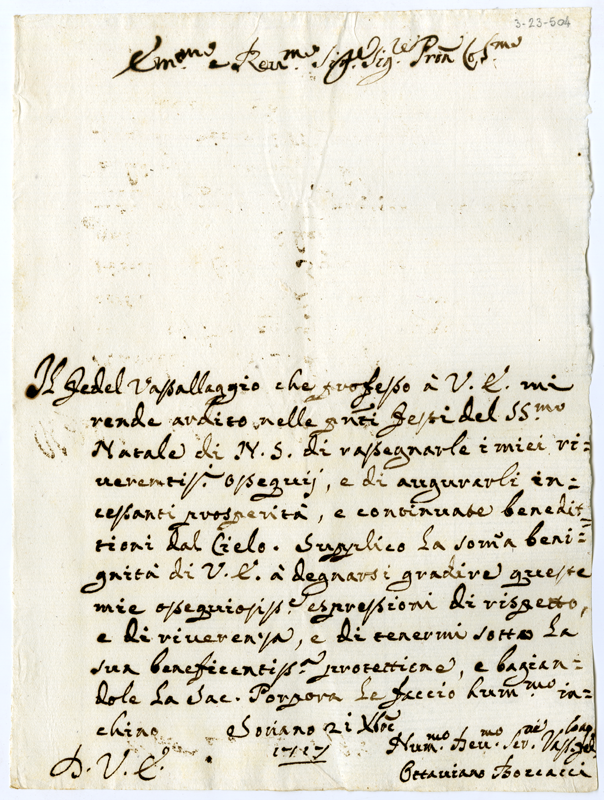 3-23-504
Em.mo e Reu.mo Sig.re Sig.re Pron Col.mo
Il fedel Vassallaggio che professo à V. E. mi
rende ardito nelle pnti Festi del SS.mo
Natale di N. S. di rassegnarle i miei ri=
ueremtiss.i ossequij, e di augurarli in=
cessanti prosperità, e continuate benedit=
tioni dal Cielo. Supplico la soma beni=
gnità di V. E. à degnarsi gradire queste
mie ossequiosiss.e espressioni di rispetto,
e di riuerenza, e di tenermi sotto la
sua beneficentiss.a protettione, e bagian=
dole la Sac. Porpora le faccio hum.mo in=
chino Soriano 21 Xbre
1717
D. V. E.
Hum.mo Deu.mo Ser.re Vass. fed.
Ottauiano